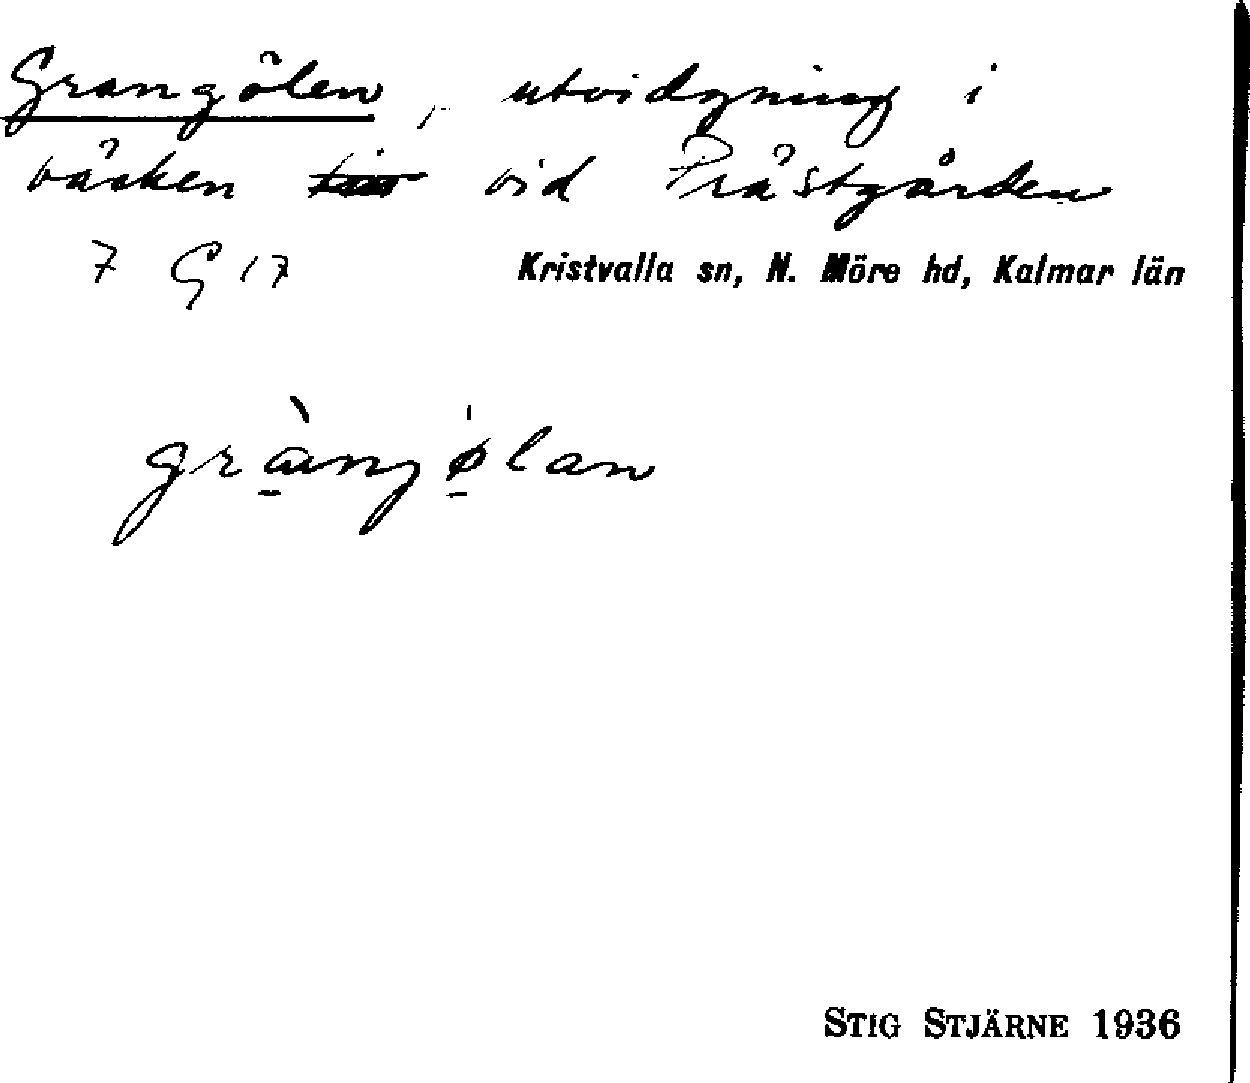 Grangölen, utvidgning i
bäcken vid Prästgården
7 G 17
Kristvalla sn, N. Möre hd, Kalmar län
grànjölan
STIG STJÄRNE 1936